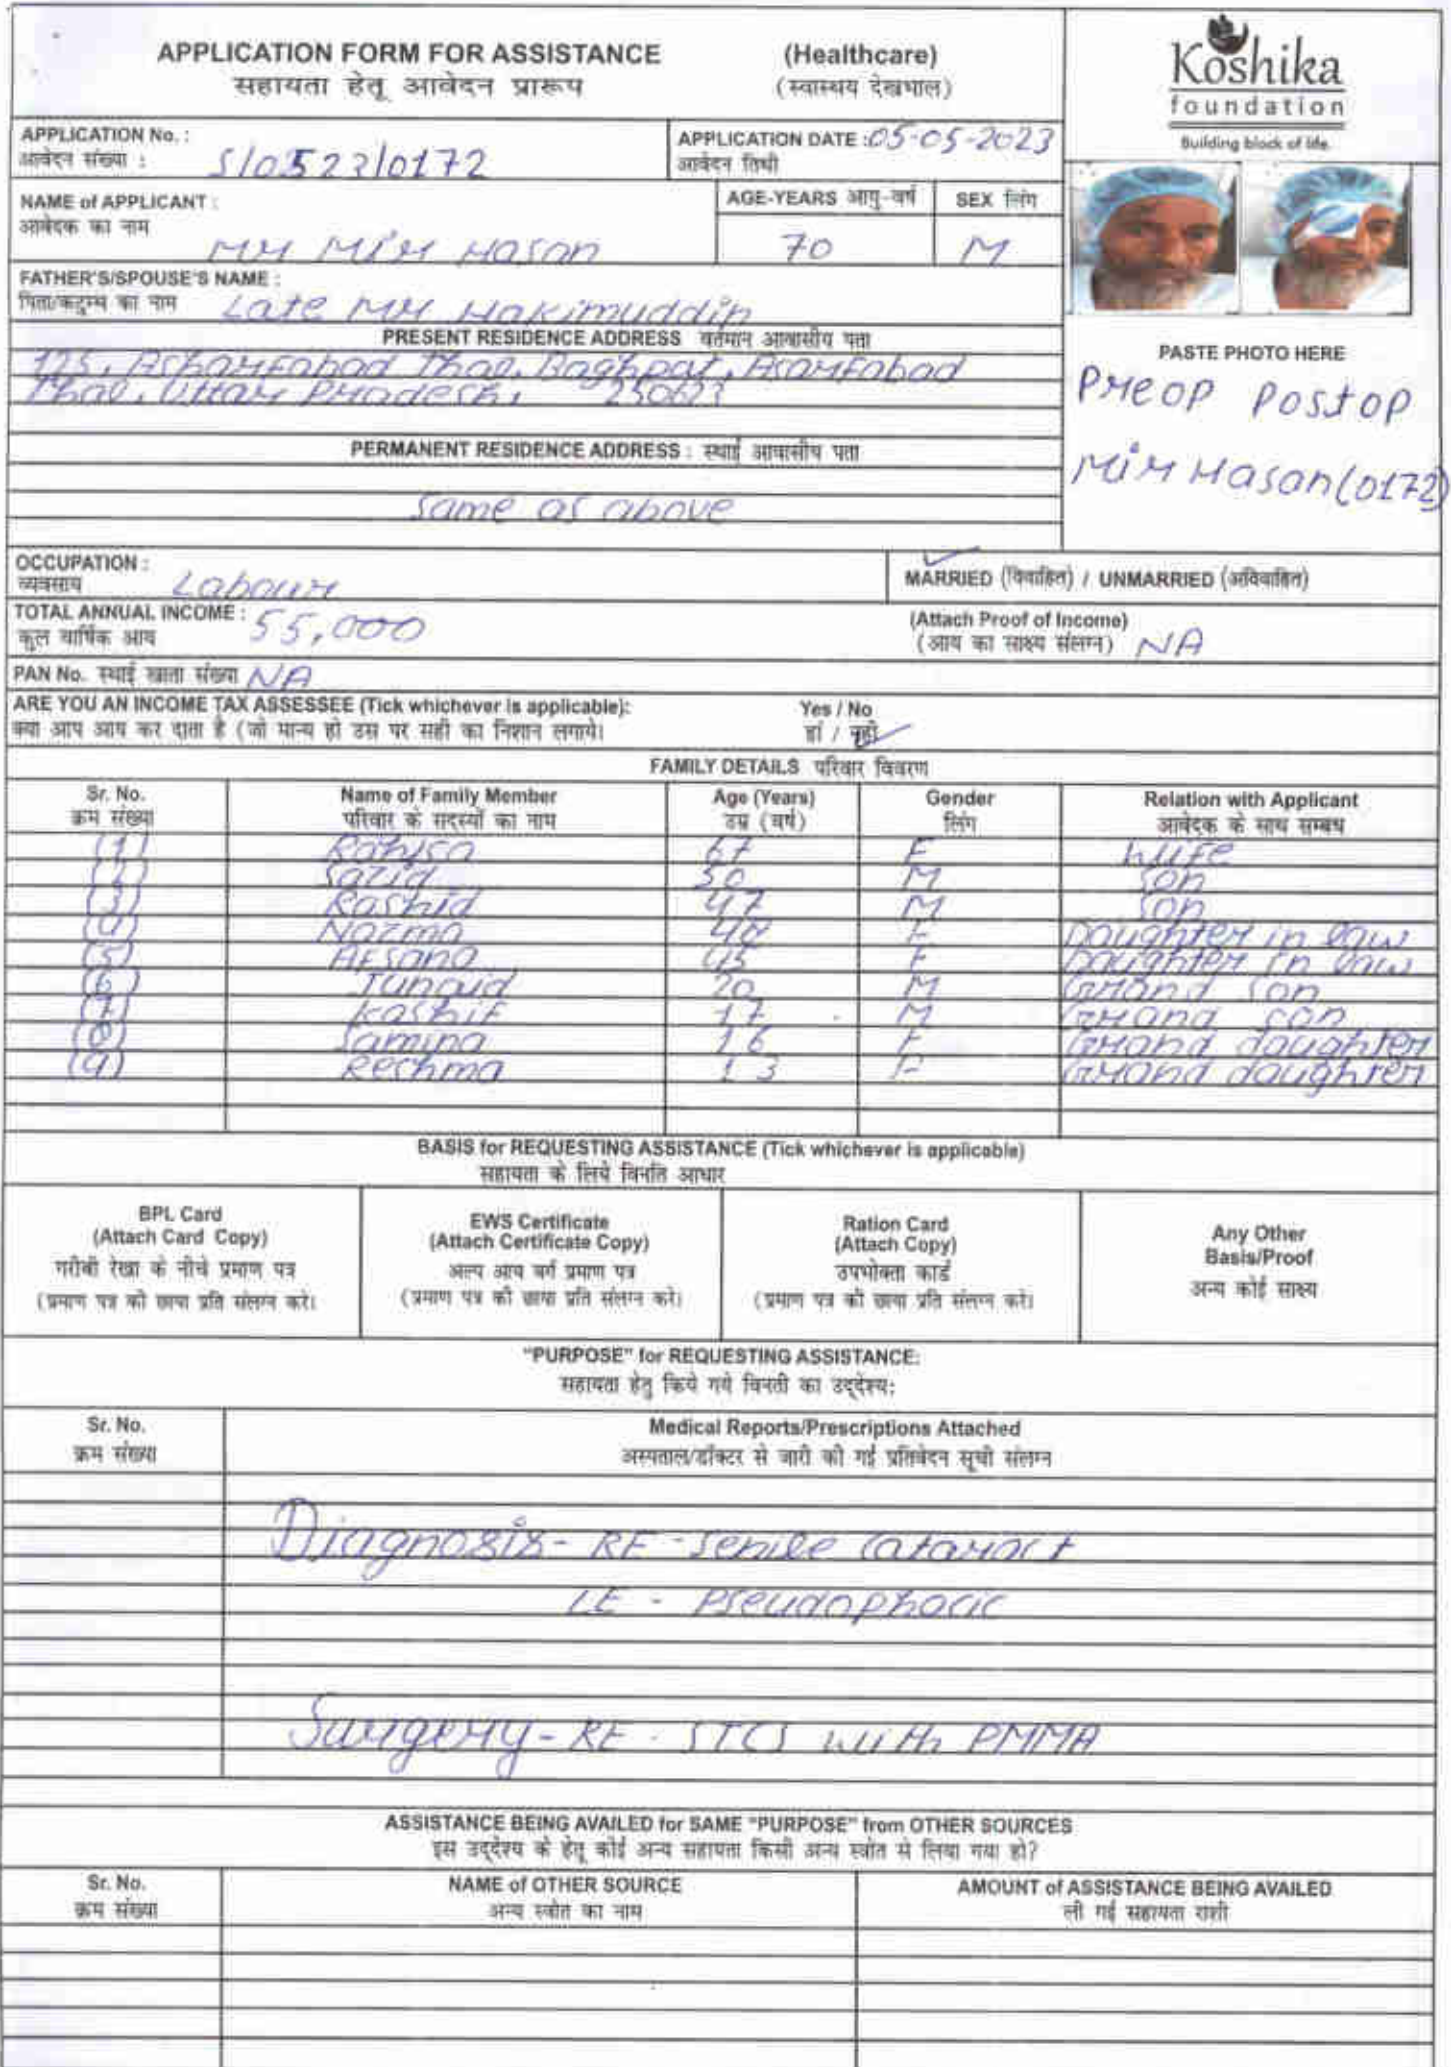 APPLICATION FORM FOR ASSISTANCE (Healthcare)
सहायता हेतू आवेदन प्रारूप (स्वास्थय देखभाल)
Koshika
foundation
Building block of life.
APPLICATION No. :
आवेदन संख्या : S/0522/0172
APPLICATION DATE : 05-05-2023
आवेदन तिथी
NAME of APPLICANT :
आवेदक का नाम Mr Mir Hasan
AGE-YEARS आयु-वर्ष
70
SEX लिंग
M
FATHER'S/SPOUSE'S NAME :
पिता/कटुम्ब का नाम Late Mr Hakimuddin
PRESENT RESIDENCE ADDRESS वर्तमान आवासीय पता
125, Asharfabad Thal, Baghpat, Asarfabad
Thal, Uttar Pradesh,
PERMANENT RESIDENCE ADDRESS : स्थाई आवासीय पता
Same as above
PASTE PHOTO HERE
Preop Postop
Mir Hasan (0172)
OCCUPATION :
व्यवसाय Labour
MARRIED (विवाहित) / UNMARRIED (अविवाहित)
TOTAL ANNUAL INCOME : 55,000
कुल वार्षिक आय
(Attach Proof of Income)
(आय का साक्ष्य संलग्न) NA
PAN No. स्थाई खाता संख्या NA
ARE YOU AN INCOME TAX ASSESSEE (Tick whichever is applicable): Yes / No
क्या आप आय कर दाता है (जो मान्य हो उस पर सही का निशान लगाये। हां / नही
FAMILY DETAILS परिवार विवरण
Sr. No. Name of Family Member Age (Years) Gender Relation with Applicant
क्रम संख्या परिवार के सदस्यों का नाम उम्र (वर्ष) लिंग आवेदक के साथ सम्बध
(1) Rahisa 67 F Wife
(2) Sazid 50 M Son
(3) Rashid 47 M Son
(4) Nazma 48 F Daughter in law
(5) Afsana 45 F Daughter in law
(6) Junaid 20 M Grand Son
(7) Kashif 17 M Grand son
(8) Samina 16 F Grand daughter
(9) Reshma 13 F Grand daughter
BASIS for REQUESTING ASSISTANCE (Tick whichever is applicable)
सहायता के लिये विनति आधार
BPL Card
(Attach Card Copy)
गरीबी रेखा के नीचे प्रमाण पत्र
(प्रमाण पत्र की छाया प्रति संलग्न करे।
EWS Certificate
(Attach Certificate Copy)
अल्प आय वर्ग प्रमाण पत्र
(प्रमाण पत्र की छाया प्रति संलग्न करे।
Ration Card
(Attach Copy)
उपभोक्ता कार्ड
(प्रमाण पत्र की छाया प्रति संलग्न करे।
Any Other
Basis/Proof
अन्य कोई साक्ष्य
"PURPOSE" for REQUESTING ASSISTANCE:
सहायता हेतु किये गये विनती का उद्देश्य:
Sr. No. Medical Reports/Prescriptions Attached
क्रम संख्या अस्पताल/डॉक्टर से जारी की गई प्रतिवेदन सूची संलग्न
Diagnosis - RE - Senile Cataract
LE - Pseudophacic
Surgery - RE - SICS with PMMA
ASSISTANCE BEING AVAILED for SAME "PURPOSE" from OTHER SOURCES
इस उद्देश्य के हेतू कोई अन्य सहायता किसी अन्य स्त्रोत से लिया गया हो?
Sr. No. NAME of OTHER SOURCE AMOUNT of ASSISTANCE BEING AVAILED
क्रम संख्या अन्य स्त्रोत का नाम ली गई सहायता राशी